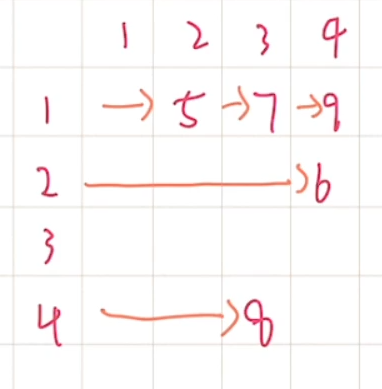 1 2 3 4
1 → 5 → 7 → 9
2 → 6
3
4 → 8